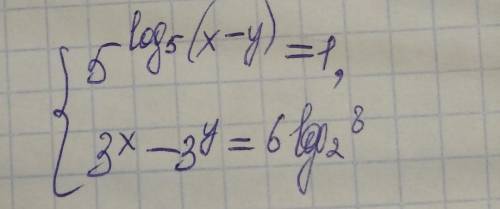 5^{log_5(x-y)} = 1,
3^x - 3^y = 6 log_2 8